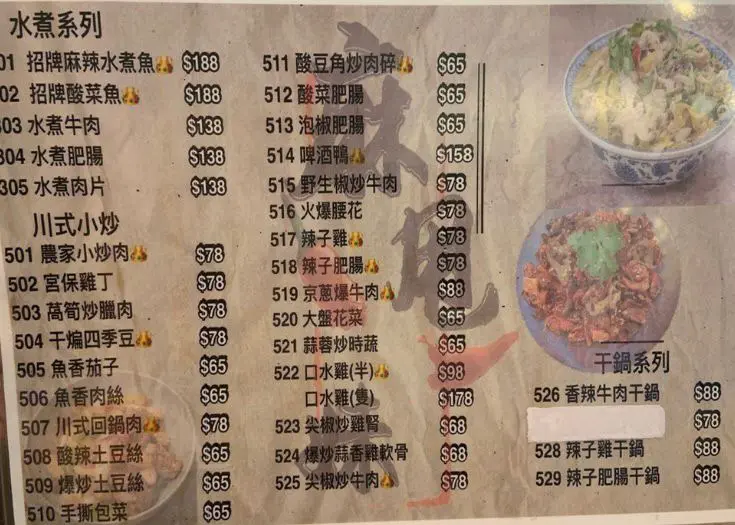 水煮系列
01 招牌麻辣水煮魚 $188
02 招牌酸菜魚 $188
303 水煮牛肉 $138
304 水煮肥腸 $138
305 水煮肉片 $138
川式小炒
501 農家小炒肉 $78
502 宮保雞丁 $78
503 萵筍炒臘肉 $78
504 干煸四季豆 $78
505 魚香茄子 $65
506 魚香肉絲 $65
507 川式回鍋肉 $78
508 酸辣土豆絲 $65
509 爆炒土豆絲 $65
510 手撕包菜 $65
511 酸豆角炒肉碎 $65
512 酸菜肥腸 $65
513 泡椒肥腸 $65
514 啤酒鴨 $158
515 野生椒炒牛肉 $78
516 火爆腰花 $78
517 辣子雞 $78
518 辣子肥腸 $78
519 京蔥爆牛肉 $88
520 大盤花菜 $65
521 蒜蓉炒時蔬 $65
522 口水雞(半) $98
口水雞(隻) $178
523 尖椒炒雞腎 $68
524 爆炒蒜香雞軟骨 $68
525 尖椒炒牛肉 $78
干鍋系列
526 香辣牛肉干鍋 $88
$78
528 辣子雞干鍋 $88
529 辣子肥腸干鍋 $88